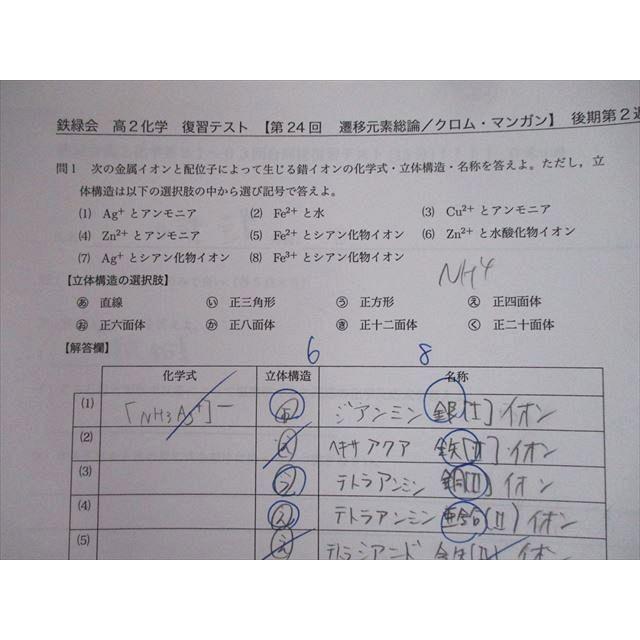 鉄緑会 高2化学 復習テスト 【第24回 遷移元素総論／クロム・マンガン】 後期第2週
問1 次の金属イオンと配位子によって生じる錯イオンの化学式・立体構造・名称を答えよ。ただし，立
体構造は以下の選択肢の中から選び記号で答えよ。
(1) Ag⁺とアンモニア (2) Fe²⁺と水 (3) Cu²⁺とアンモニア
(4) Zn²⁺とアンモニア (5) Fe²⁺とシアン化物イオン (6) Zn²⁺と水酸化物イオン
(7) Ag⁺とシアン化物イオン (8) Fe³⁺とシアン化物イオン
NH4
【立体構造の選択肢】
あ 直線 い 正三角形 う 正方形 え 正四面体
お 正六面体 か 正八面体 き 正十二面体 く 正二十面体
【解答欄】 6 8
化学式 立体構造 名称
(1) [NH3Ag⁺]⁻ あ ジアンミン銀[I]イオン
(2) ヘキサアクア鉄[II]イオン
(3) う テトラアンミン銅[II]イオン
(4) え テトラアンミン亜鉛(II)イオン
(5) え テトラシアニド イオン